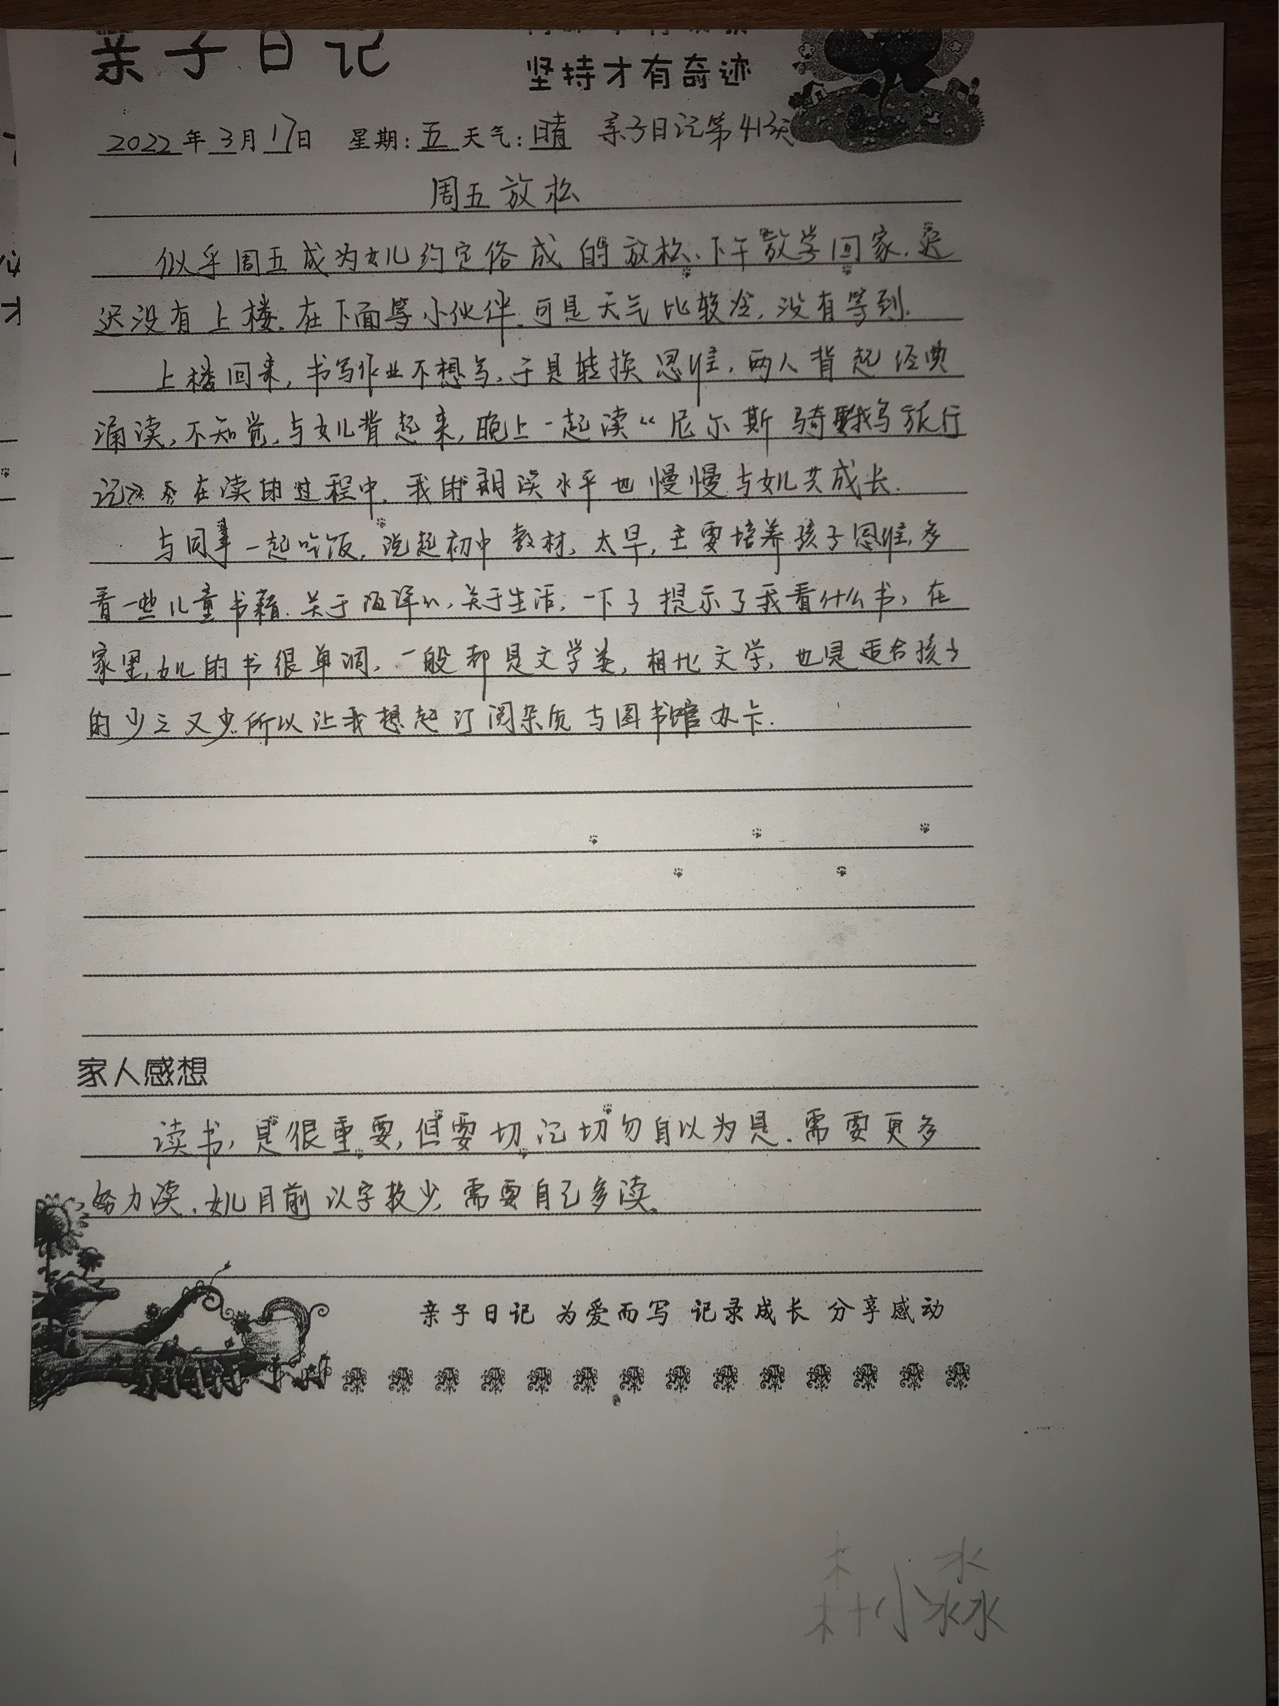 亲子日记
坚持才有奇迹
2022年3月17日 星期:五 天气:晴 亲子日记第413天
周五放松
似乎周五成为女儿约定俗成的放松、下午散学回家.迟
迟没有上楼.在下面等小伙伴.可是天气比较冷,没有等到.
上楼回来,书写作业不想写,于是转换思维,两人背起经典
诵读,不知觉,与女儿背起来,晚上一起读“尼尔斯骑鹅旅行
记》在读的过程中,我的朗读水平也慢慢与女儿共成长.
与同事一起吃饭,说起初中教材,太早,主要培养孩子思维,多
看一些儿童书籍.关于,关于生活,一下子提示了我看什么书,在
家里,女儿的书很单调,一般都是文学类,相比文学,也是适合孩子
的少之又少.所以让我想起订阅杂质与图书馆办卡.
家人感想
读书,是很重要,但要切记切勿自以为是.需要更多
努力读.女儿目前以字较少,需要自己多读.
亲子日记 为爱而写 记录成长 分享感动